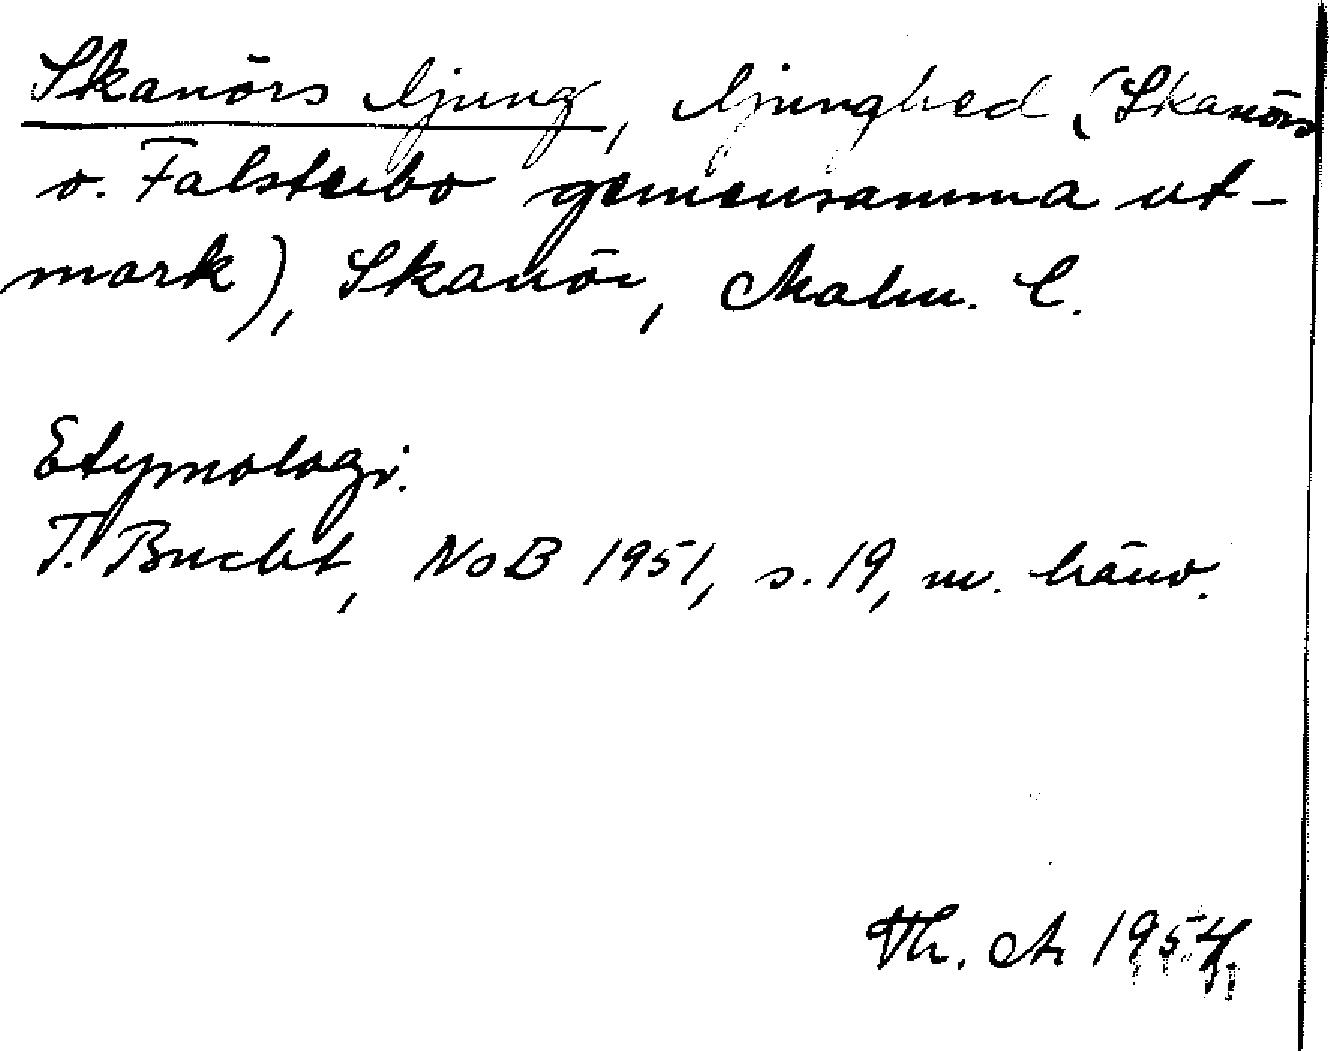 Skanörs ljung, ljunghed (Skanörs
o. Falsterbo gemensamma ut-
mark), Skanör, Malm. l.
Etymologi.
T. Bucht, NoB 1951, s. 19, m. hänv.
Th. A. 1954.